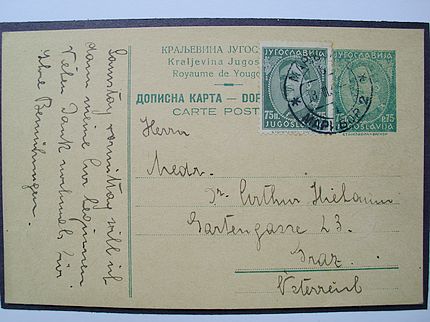 КРАЉЕВИНА ЈУГОС
Kraljevina Jugos
Royaume de Yougo
ДОПИСНА КАРТА — DOP
CARTE POST
ЈУГОСЛАВИЈА
75п.
JUGOSLAVIJA
75 p.75
МАРИБОР 2
Herrn
Medr.
Dr. Arthur
Gartengasse 23.
Graz.
Österreich
Samstag vormittag will ich
dann meine Kur beginnen
Vielen Dank nochmals für
Ihre Bemühungen.